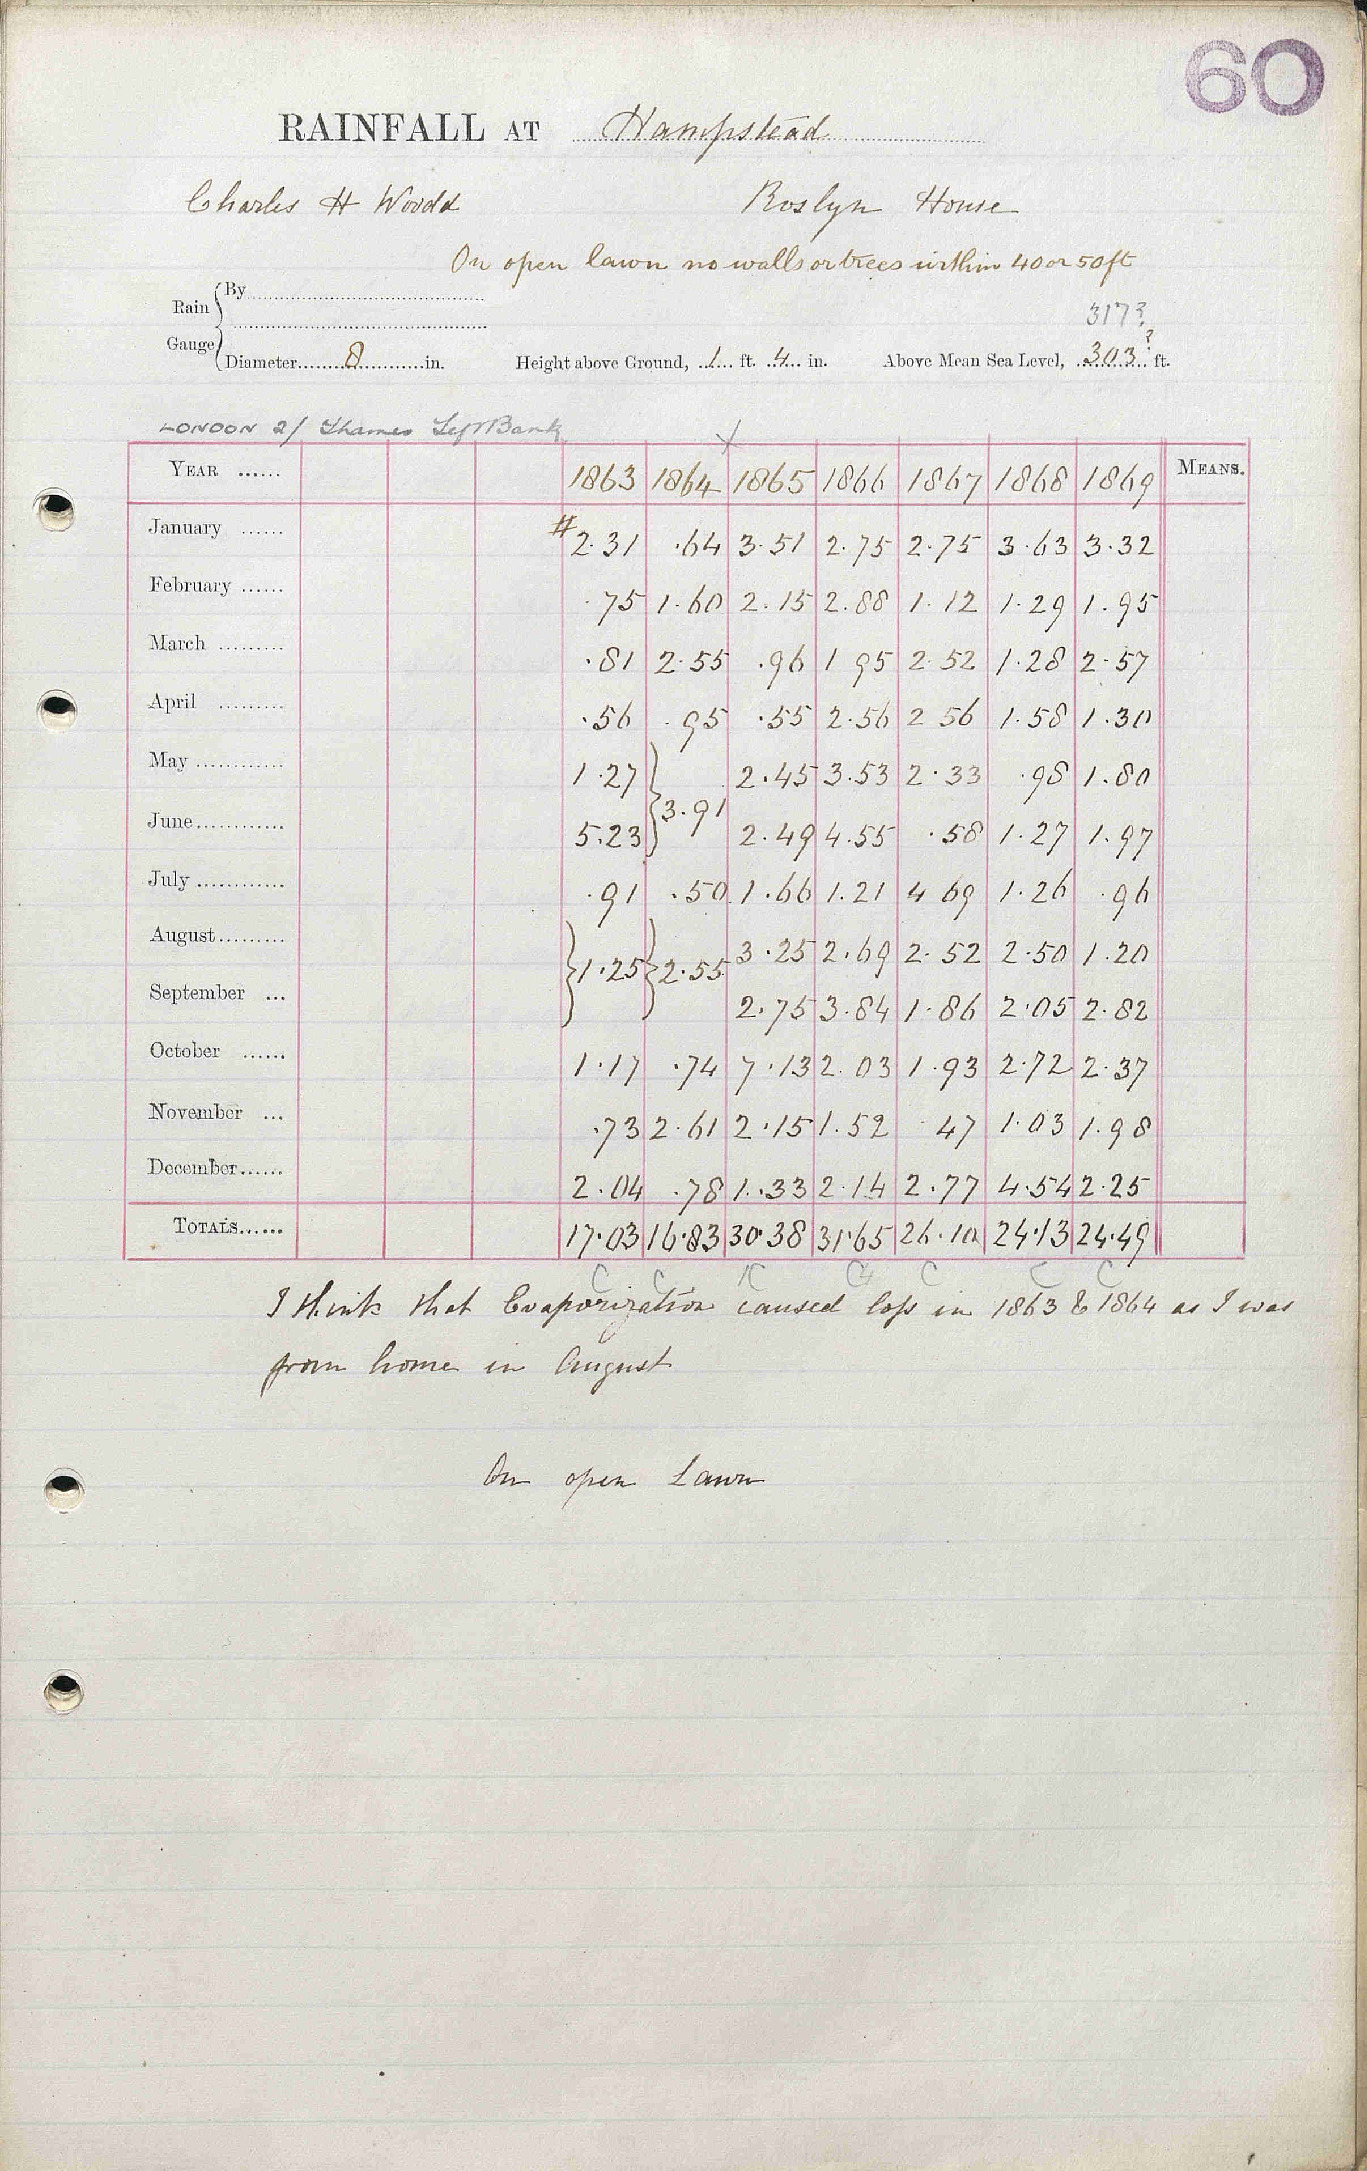 60
RAINFALL AT Hampstead
Charles H Woodd Roslyn House
On open lawn no walls or trees within 40 or 50 ft
Rain Gauge By
317?
Diameter 8 in. Height above Ground, 1 ft. 4 in. Above Mean Sea Level, 303? ft.
LONDON 2/ Thames Left Bank
YEAR ...... 1863 1864 1865 1866 1867 1868 1869 MEANS.
January ...... # 2.31 .64 3.51 2.75 2.75 3.63 3.32
February ...... .75 1.60 2.15 2.88 1.12 1.29 1.95
March ......... .81 2.55 .96 1 95 2.52 1.28 2.57
April ......... .56 .95 .55 2.56 2 56 1.58 1.30
May ............ 1.27 } 3.91 2.45 3.53 2.33 .98 1.80
June ............ 5.23 2.49 4.55 .58 1.27 1.97
July ............ .91 .50 1.66 1.21 4 69 1.26 .96
August ......... } 1.25 } 2.55 3.25 2.69 2.52 2.50 1.20
September ... 2.75 3.84 1.86 2.05 2.82
October ...... 1.17 .74 7.13 2.03 1.93 2.72 2.37
November ... .73 2.61 2.15 1.52 .47 1.03 1.98
December ...... 2.04 .78 1.33 2.14 2.77 4.54 2.25
TOTALS ...... 17.03 16.83 30.38 31.65 26.10 24.13 24.49
I think that Evaporization caused loss in 1863 & 1864 as I was
from home in August
On open Lawn